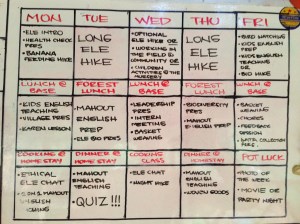 MON
TUE
WED
THU
FRI
• ELE INTRO
• HEALTH CHECK
PRES
• BANANA
FEEDING HIKE
LONG
ELE
HIKE
• OPTIONAL
ELE HIKE OR
• WORKING IN
THE FIELD &
COMMUNITY OR
• CHILDREN
ACTIVITIES @ THE
NURSERY
LONG
ELE
HIKE
• BIRD WATCHING
• KIDS ENGLISH
PREP
• KIDS ENGLISH
TEACHING
LUNCH @
BASE
FOREST
LUNCH
LUNCH @
BASE
FOREST
LUNCH
LUNCH @
BASE
• KIDS ENGLISH
TEACHING
• VILLAGE PRES
• KAREN LESSON
• MAHOUT
ENGLISH
PREP
• ELE BIO PRES
• LEADERSHIP
PRES
• INTERN
MEETING
• BASKET
WEAVING
• BIODIVERSITY
PRES
• MAHOUT
ENGLISH PREP
• BASKET
WEAVING
• CHORES
• FEEDBACK
SESSION
• DATA COLLECTION
PRES
COOKING @
HOME STAY
DINNER @
HOME STAY
COOKING
CLASS
DINNER @
HOMESTAY
POT LUCK
• ETHICAL
ELE CHAT
• MAHOUT
ENGLISH
TEACHING
• QUIZ!!!
• ELE CHAT
• NIGHT HIKE
• MAHOUT
ENGLISH
TEACHING
OF THE
WEEK
• MOVIE OR
PARTY NIGHT